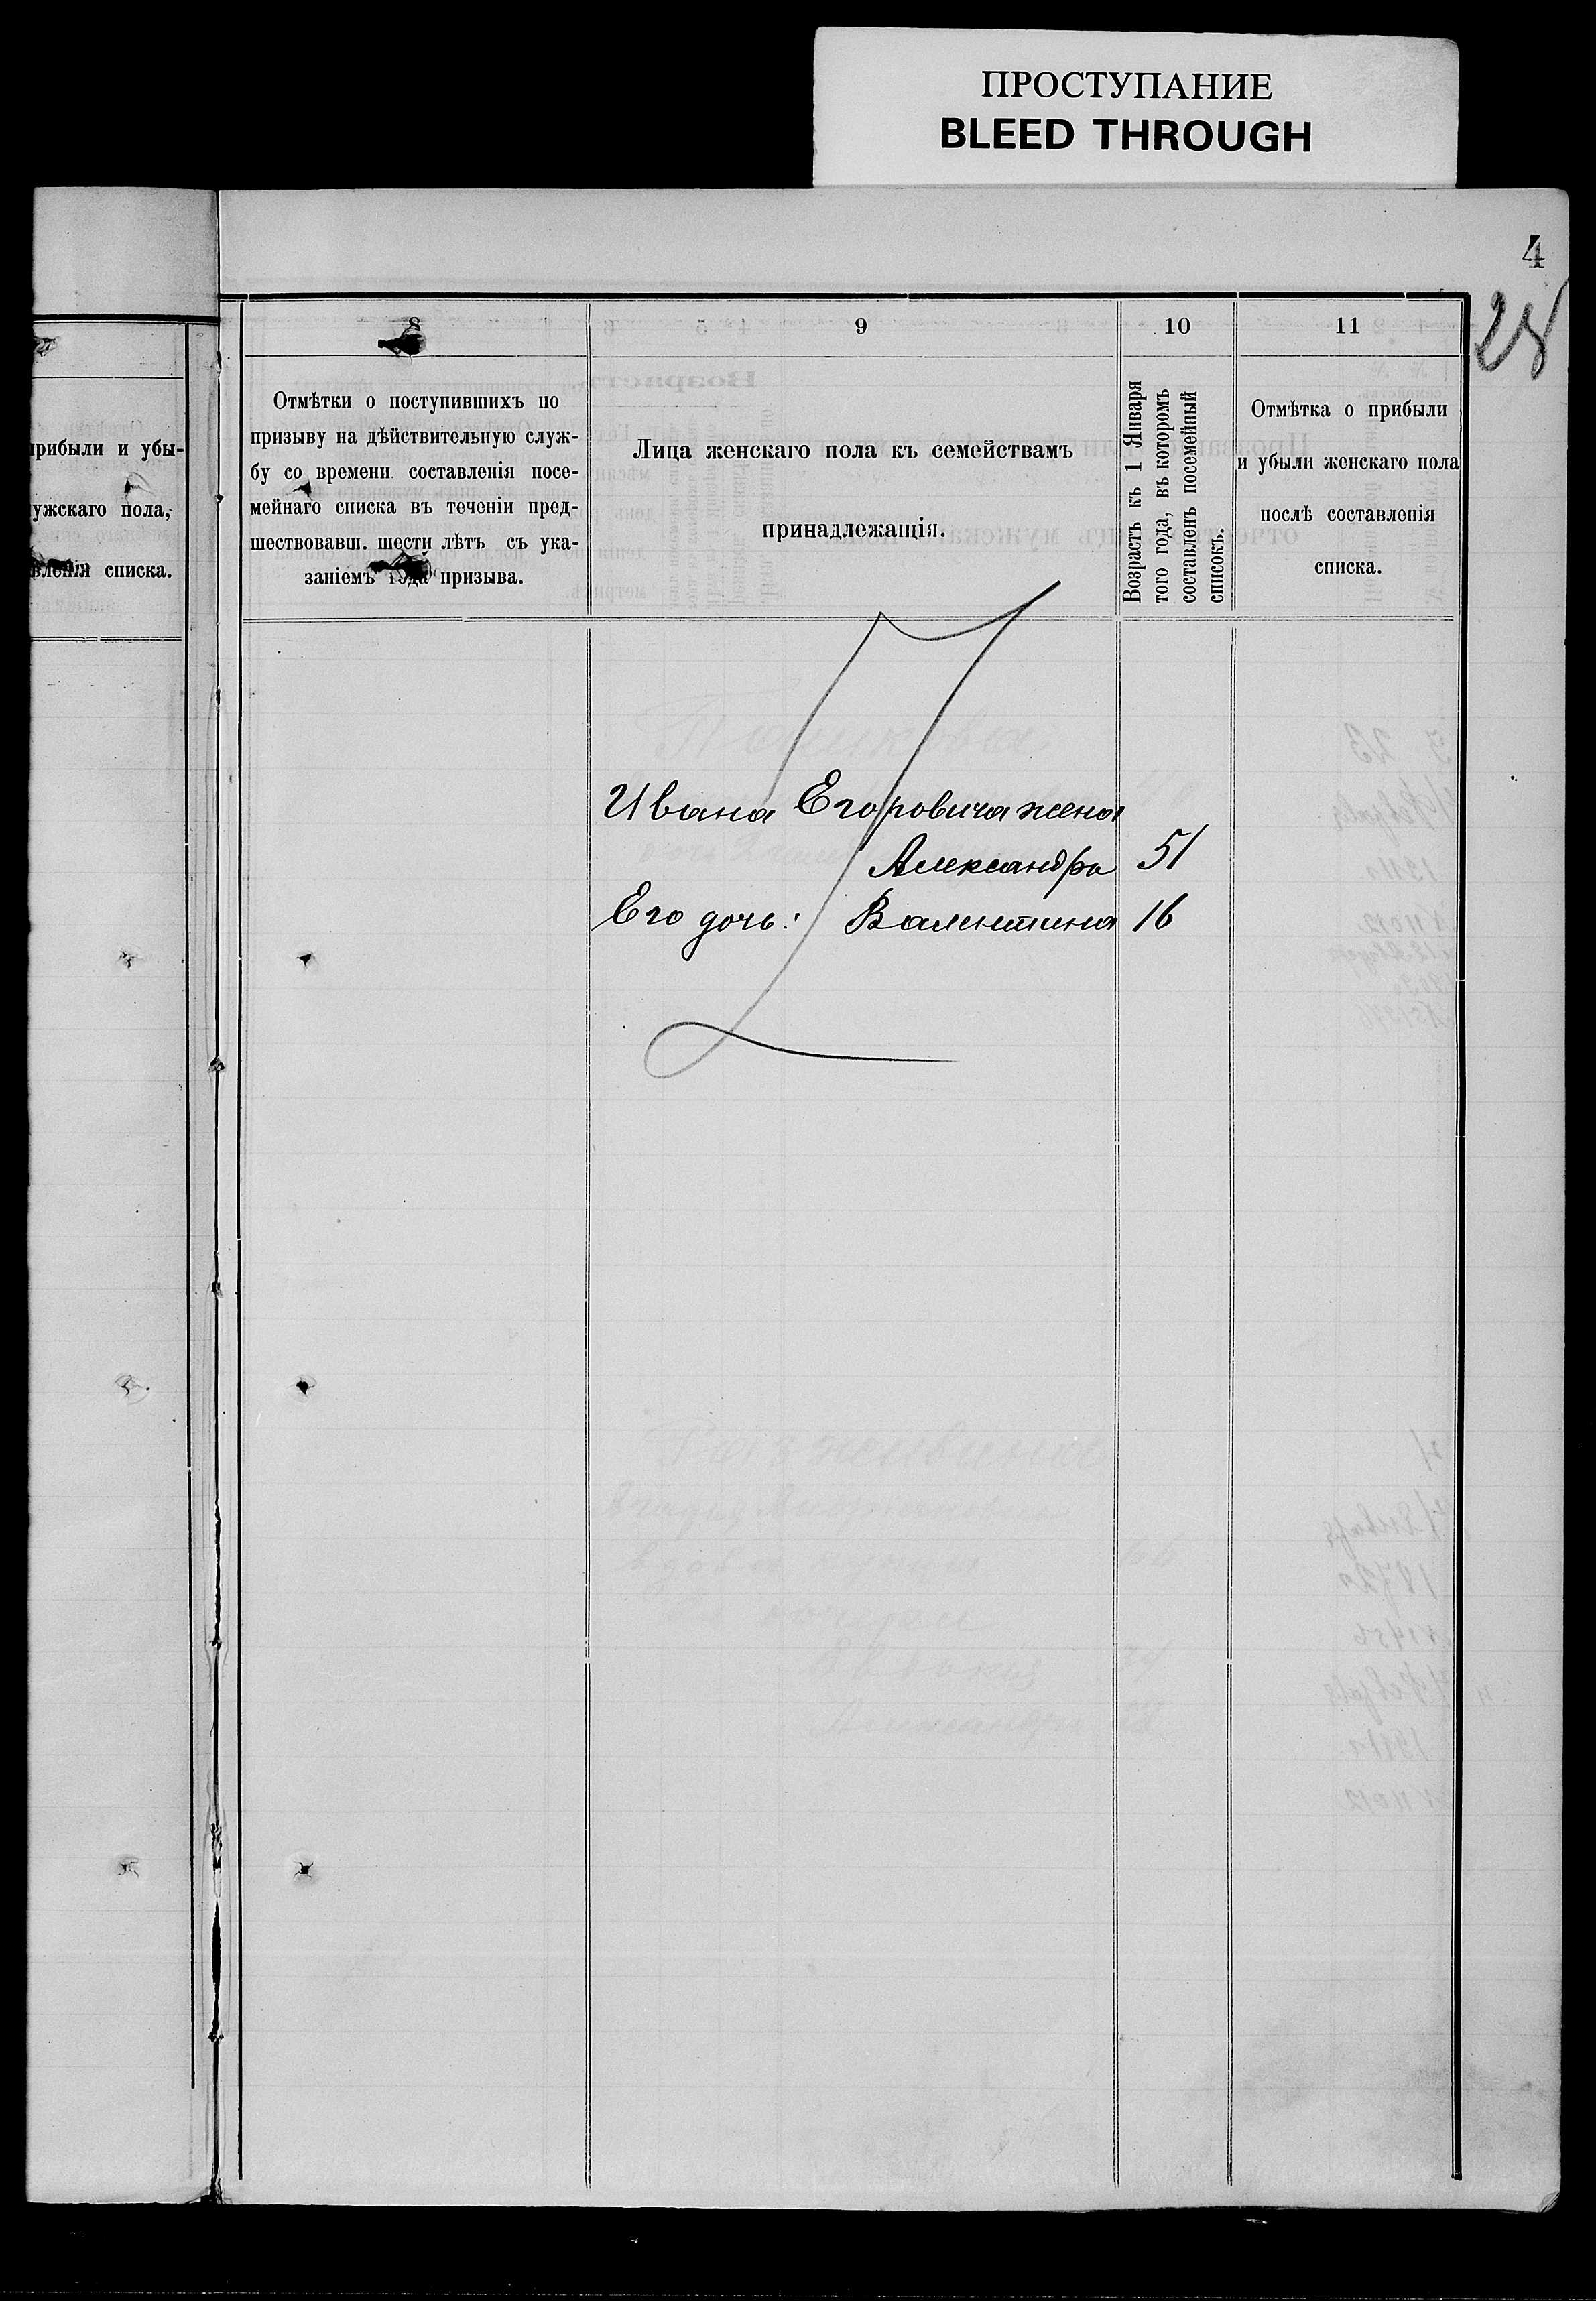 ПРОСТУПАНИЕ
BLEED THROUGH
4
28
прибыли и убы-
ужскаго пола,
вленія списка.
8
Отмѣтки о поступившихъ по
призыву на дѣйствительную служ-
бу со времени составленія посе-
мейнаго списка въ теченіи пред-
шествовавш. шести лѣтъ съ ука-
заніемъ года призыва.
9
Лица женскаго пола къ семействамъ
принадлежащія.
10
Возрастъ къ 1 Января
того года, въ которомъ
составленъ посемейный
списокъ.
11
Отмѣтка о прибыли
и убыли женскаго пола
послѣ составленія
списка.
Ивана Егоровича жена
Александра 51
Его дочь: Валентина 16